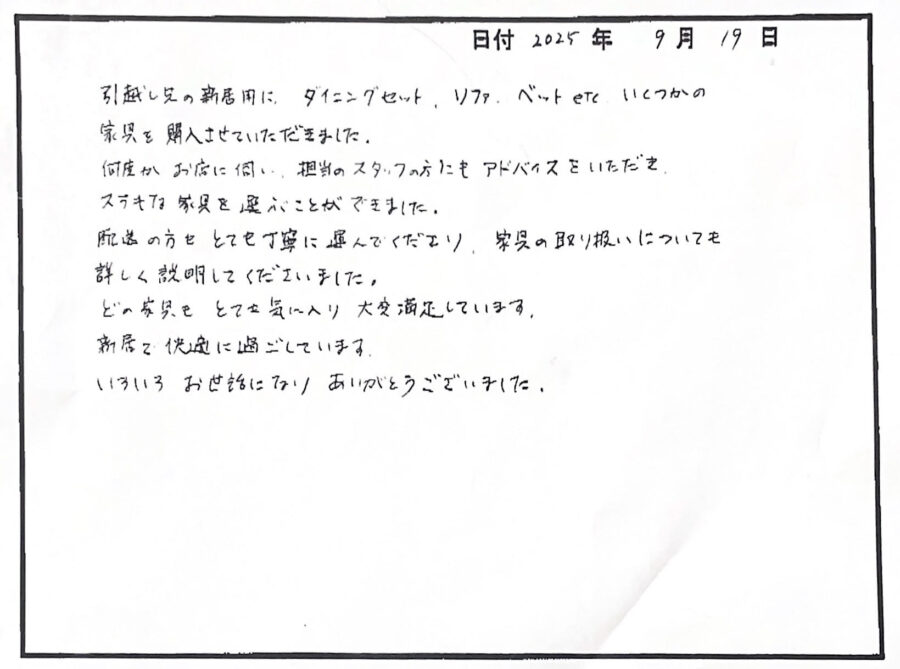 日付 2025 年 9 月 19 日
引越し先の新居用に、ダイニングセット、ソファ、ベット etc いくつかの
家具を購入させていただきました。
何度か お店に伺い、担当のスタッフの方にも アドバイスをいただき、
ステキな 家具を選ぶことができました。
配送の方も とても丁寧に運んでくださり、家具の取り扱いについても
詳しく説明してくださいました。
どの家具も とても気に入り 大変満足しています。
新居で快適に過ごしています。
いろいろ お世話になり ありがとうございました。